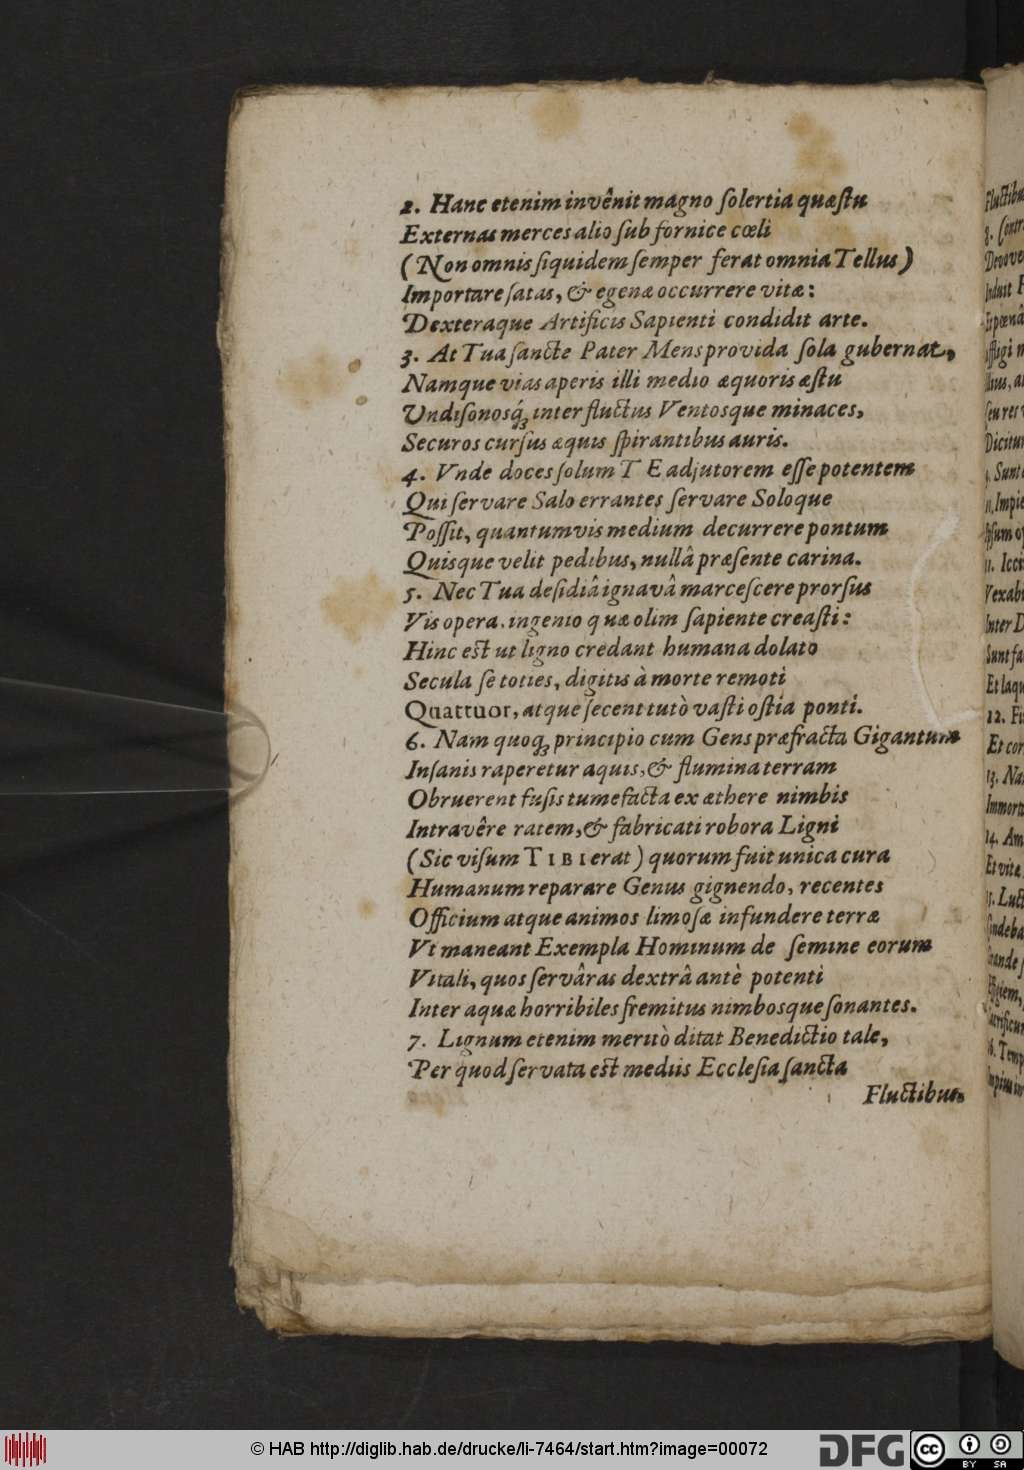 2. Hanc etenim invênit magno ſolertia quæſtu
Externas merces alio ſub fornice cœli
(Non omnis ſiquidem ſemper ferat omnia Tellus)
Importare ſatas, & egenæ occurrere vitæ:
Dexteraque Artificis Sapienti condidit arte.
3. At Tua ſancte Pater Mens provida ſola gubernat,
Namque vias aperis illi medio æquoris æſtu
Undiſonosq́; inter fluctus Ventosque minaces,
Securos curſus æquis ſpirantibus auris.
4. Vnde doces ſolum TE adjutorem eſſe potentem
Qui ſervare Salo errantes ſervare Soloque
Poſſit, quantumvis medium decurrere pontum
Quisque velit pedibus, nullâ præſente carina.
5. Nec Tua deſidiâ ignavâ marceſcere prorſus
Vis opera, ingenio quæ olim ſapiente creaſti:
Hinc eſt ut ligno credant humana dolato
Secula ſe toties, digitis à morte remoti
Quattuor, atque ſecent tutò vaſti oſtia ponti.
6. Nam quoq; principio cum Gens præfracta Gigantum
Inſanis raperetur aquis, & flumina terram
Obruerent fuſis tumefacta ex æthere nimbis
Intravêre ratem, & fabricati robora Ligni
(Sic viſum TIBI erat) quorum fuit unica cura
Humanum reparare Genus gignendo, recentes
Officium atque animos limoſæ infundere terræ
Vt maneant Exempla Hominum de ſemine eorum
Vitali, quos ſervâras dextrâ antè potenti
Inter aquæ horribiles fremitus nimbosque ſonantes.
7. Lignum etenim meritò ditat Benedictio tale,
Per quod ſervata eſt mediis Eccleſia ſancta
Fluctibus,
© HAB http://diglib.hab.de/drucke/li-7464/start.htm?image=00072
DFG
cc BY SA